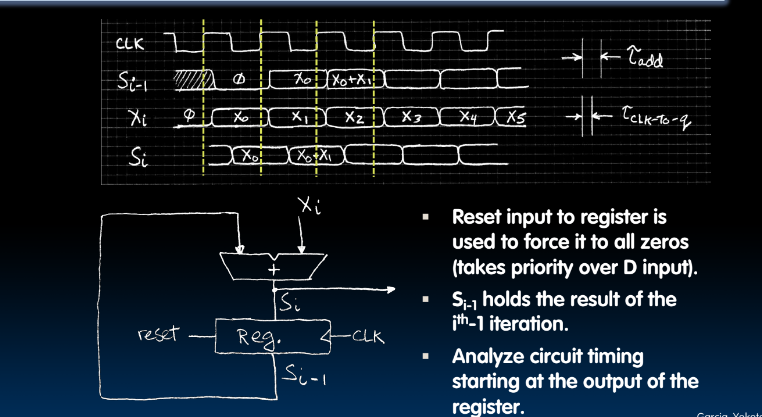 CLK
τadd
Si-1 φ X0 X0+X1
Xi φ X0 X1 X2 X3 X4 X5
τCLK-TO-q
Si X0 X0+X1
Xi
+
Si
reset Reg. CLK
Si-1
▪ Reset input to register is
used to force it to all zeros
(takes priority over D input).
▪ Si-1 holds the result of the
ith-1 iteration.
▪ Analyze circuit timing
starting at the output of the
register.